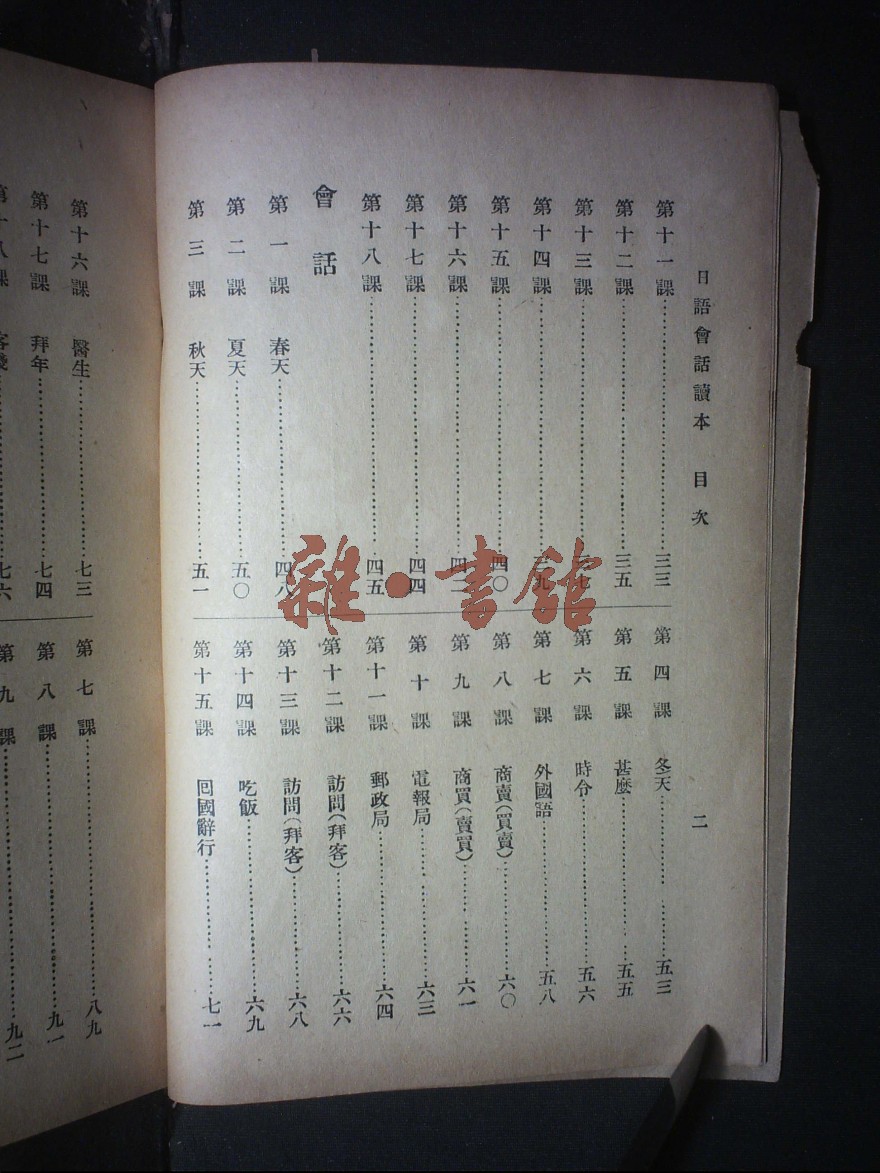 日語會話讀本　目次
二
第十一課……三三
第十二課……三五
第十三課……三七
第十四課……三九
第十五課……四〇
第十六課……四二
第十七課……四四
第十八課……四五
會話
第一課　春天……四八
第二課　夏天……五〇
第三課　秋天……五一
第四課　冬天……五三
第五課　甚麼……五五
第六課　時分……五六
第七課　外國語……五八
第八課　商賣(買賣)……六〇
第九課　商買(賣買)……六一
第十課　電報局……六三
第十一課　郵政局……六四
第十二課　訪問(拜客)……六六
第十三課　訪問(拜客)……六八
第十四課　吃飯……六九
第十五課　回國辭行……七一
第十六課　醫生……七三
第十七課　拜年……七四
第十八課　客棧……七六
第七課……八九
第八課……九一
第九課……九二
雜·書館